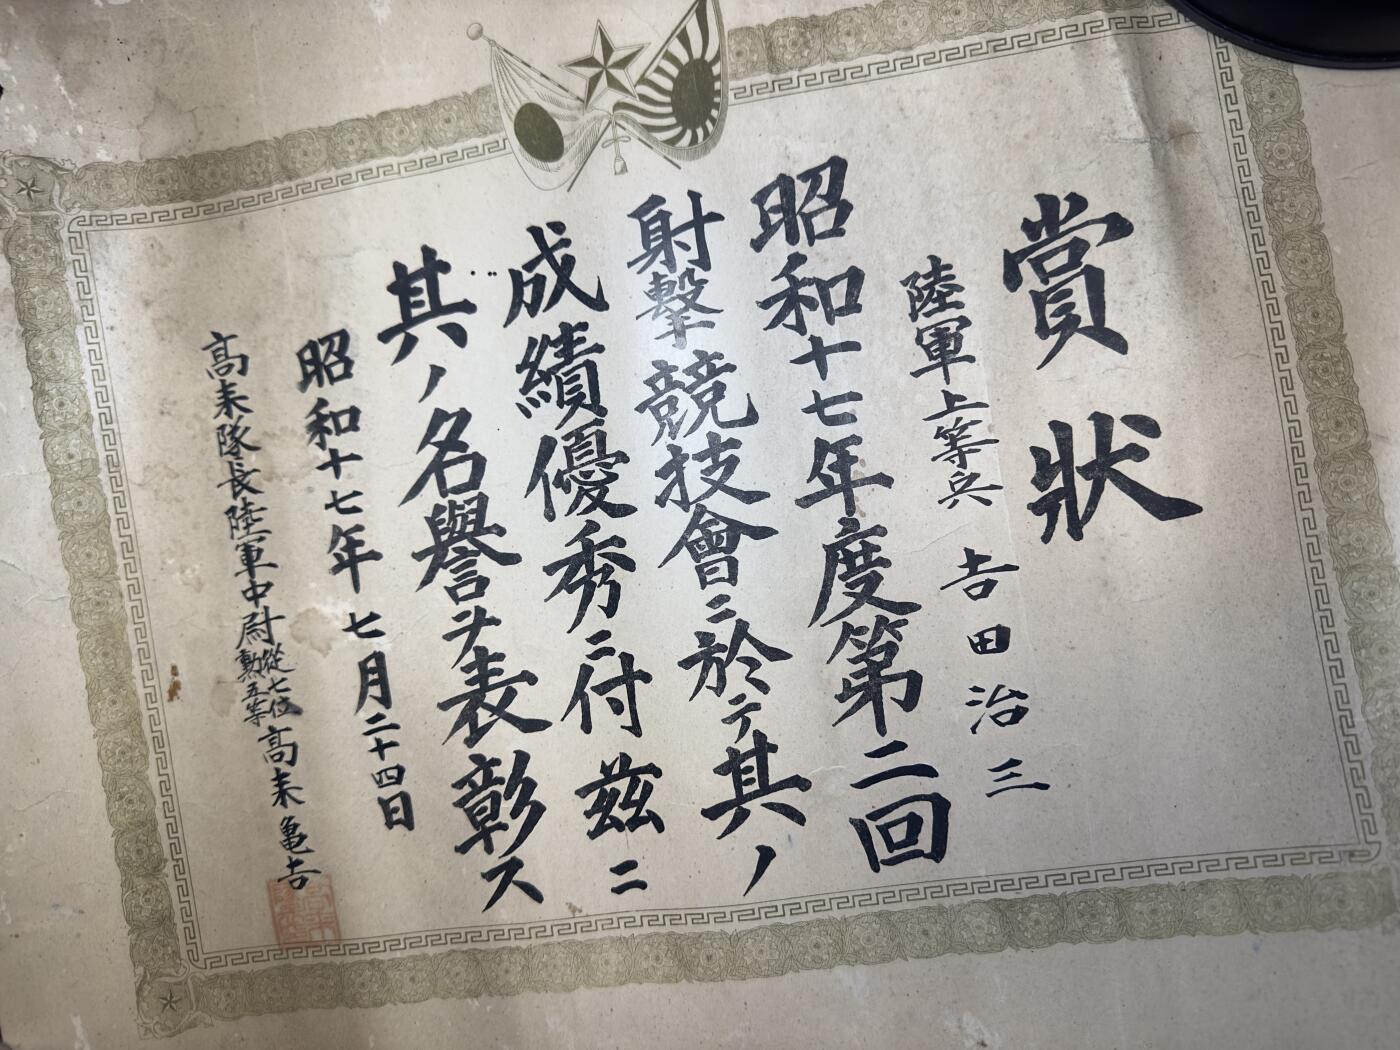 賞狀
陸軍上等兵 吉田治三
昭和十七年度第二回
射擊競技會ニ於テ其ノ
成績優秀ニ付茲ニ
其ノ名譽ヲ表彰ス
昭和十七年七月二十四日
高耒隊長陸軍中尉從七位勳五等高耒亀吉